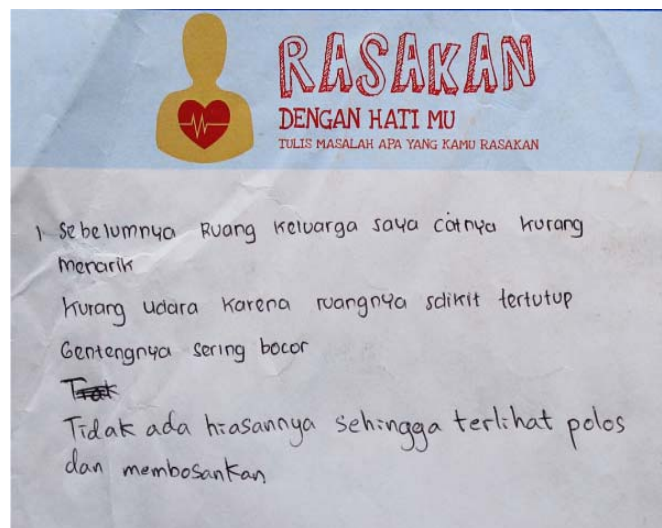 RASAKAN
DENGAN HATI MU
TULIS MASALAH APA YANG KAMU RASAKAN
1 Sebelumnya Ruang keluarga saya catnya kurang
menarik
Kurang udara karena ruangnya sdikit tertutup
Gentengnya sering bocor
Tidak ada hiasannya sehingga terlihat polos
dan membosankan